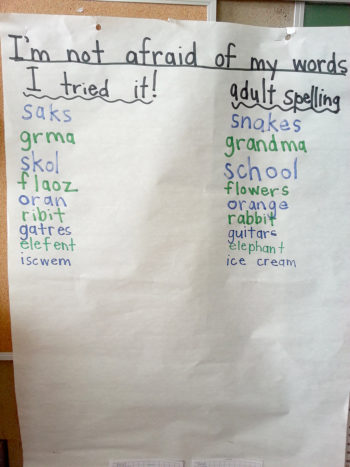 I'm not afraid of my words
I tried it! adult spelling
saks snakes
grma grandma
skol school
flaoz flowers
oran orange
ribit rabbit
gatres guitars
elefent elephant
iscwem ice cream